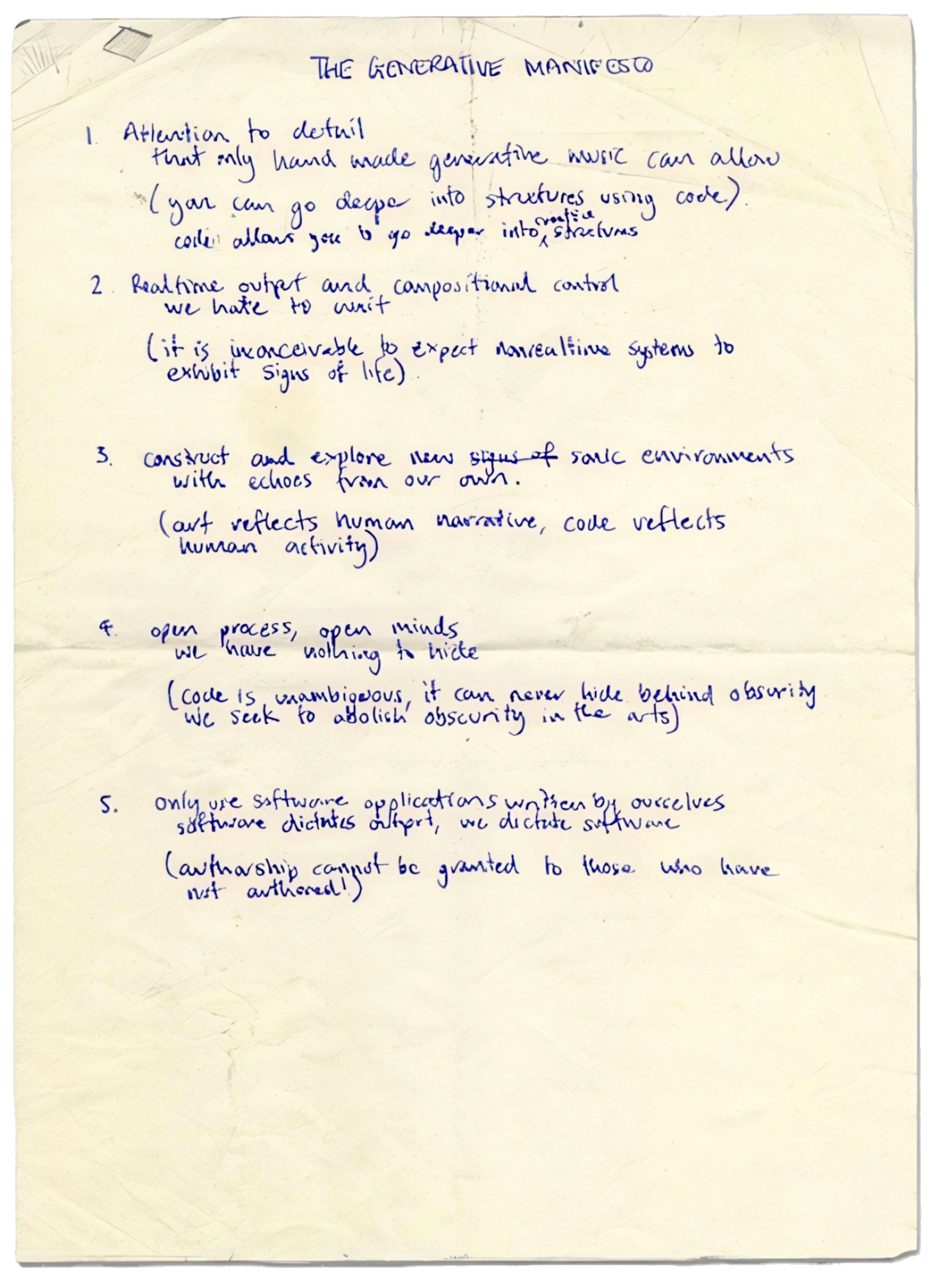 THE GENERATIVE MANIFESTO
1. Attention to detail
that only hand made generative music can allow
(you can go deeper into structures using code).
code allows you to go deeper into creative structures
2. Realtime output and compositional control
we hate to wait
(it is inconceivable to expect nonrealtime systems to
exhibit signs of life)
3. construct and explore new signs of sonic environments
with echoes from our own.
(art reflects human narrative, code reflects
human activity)
4. open process, open minds
we have nothing to hide
(code is unambiguous, it can never hide behind obscurity
we seek to abolish obscurity in the arts)
5. only use software applications written by ourselves
software dictates output, we dictate software
(authorship cannot be granted to those who have
not authored!)